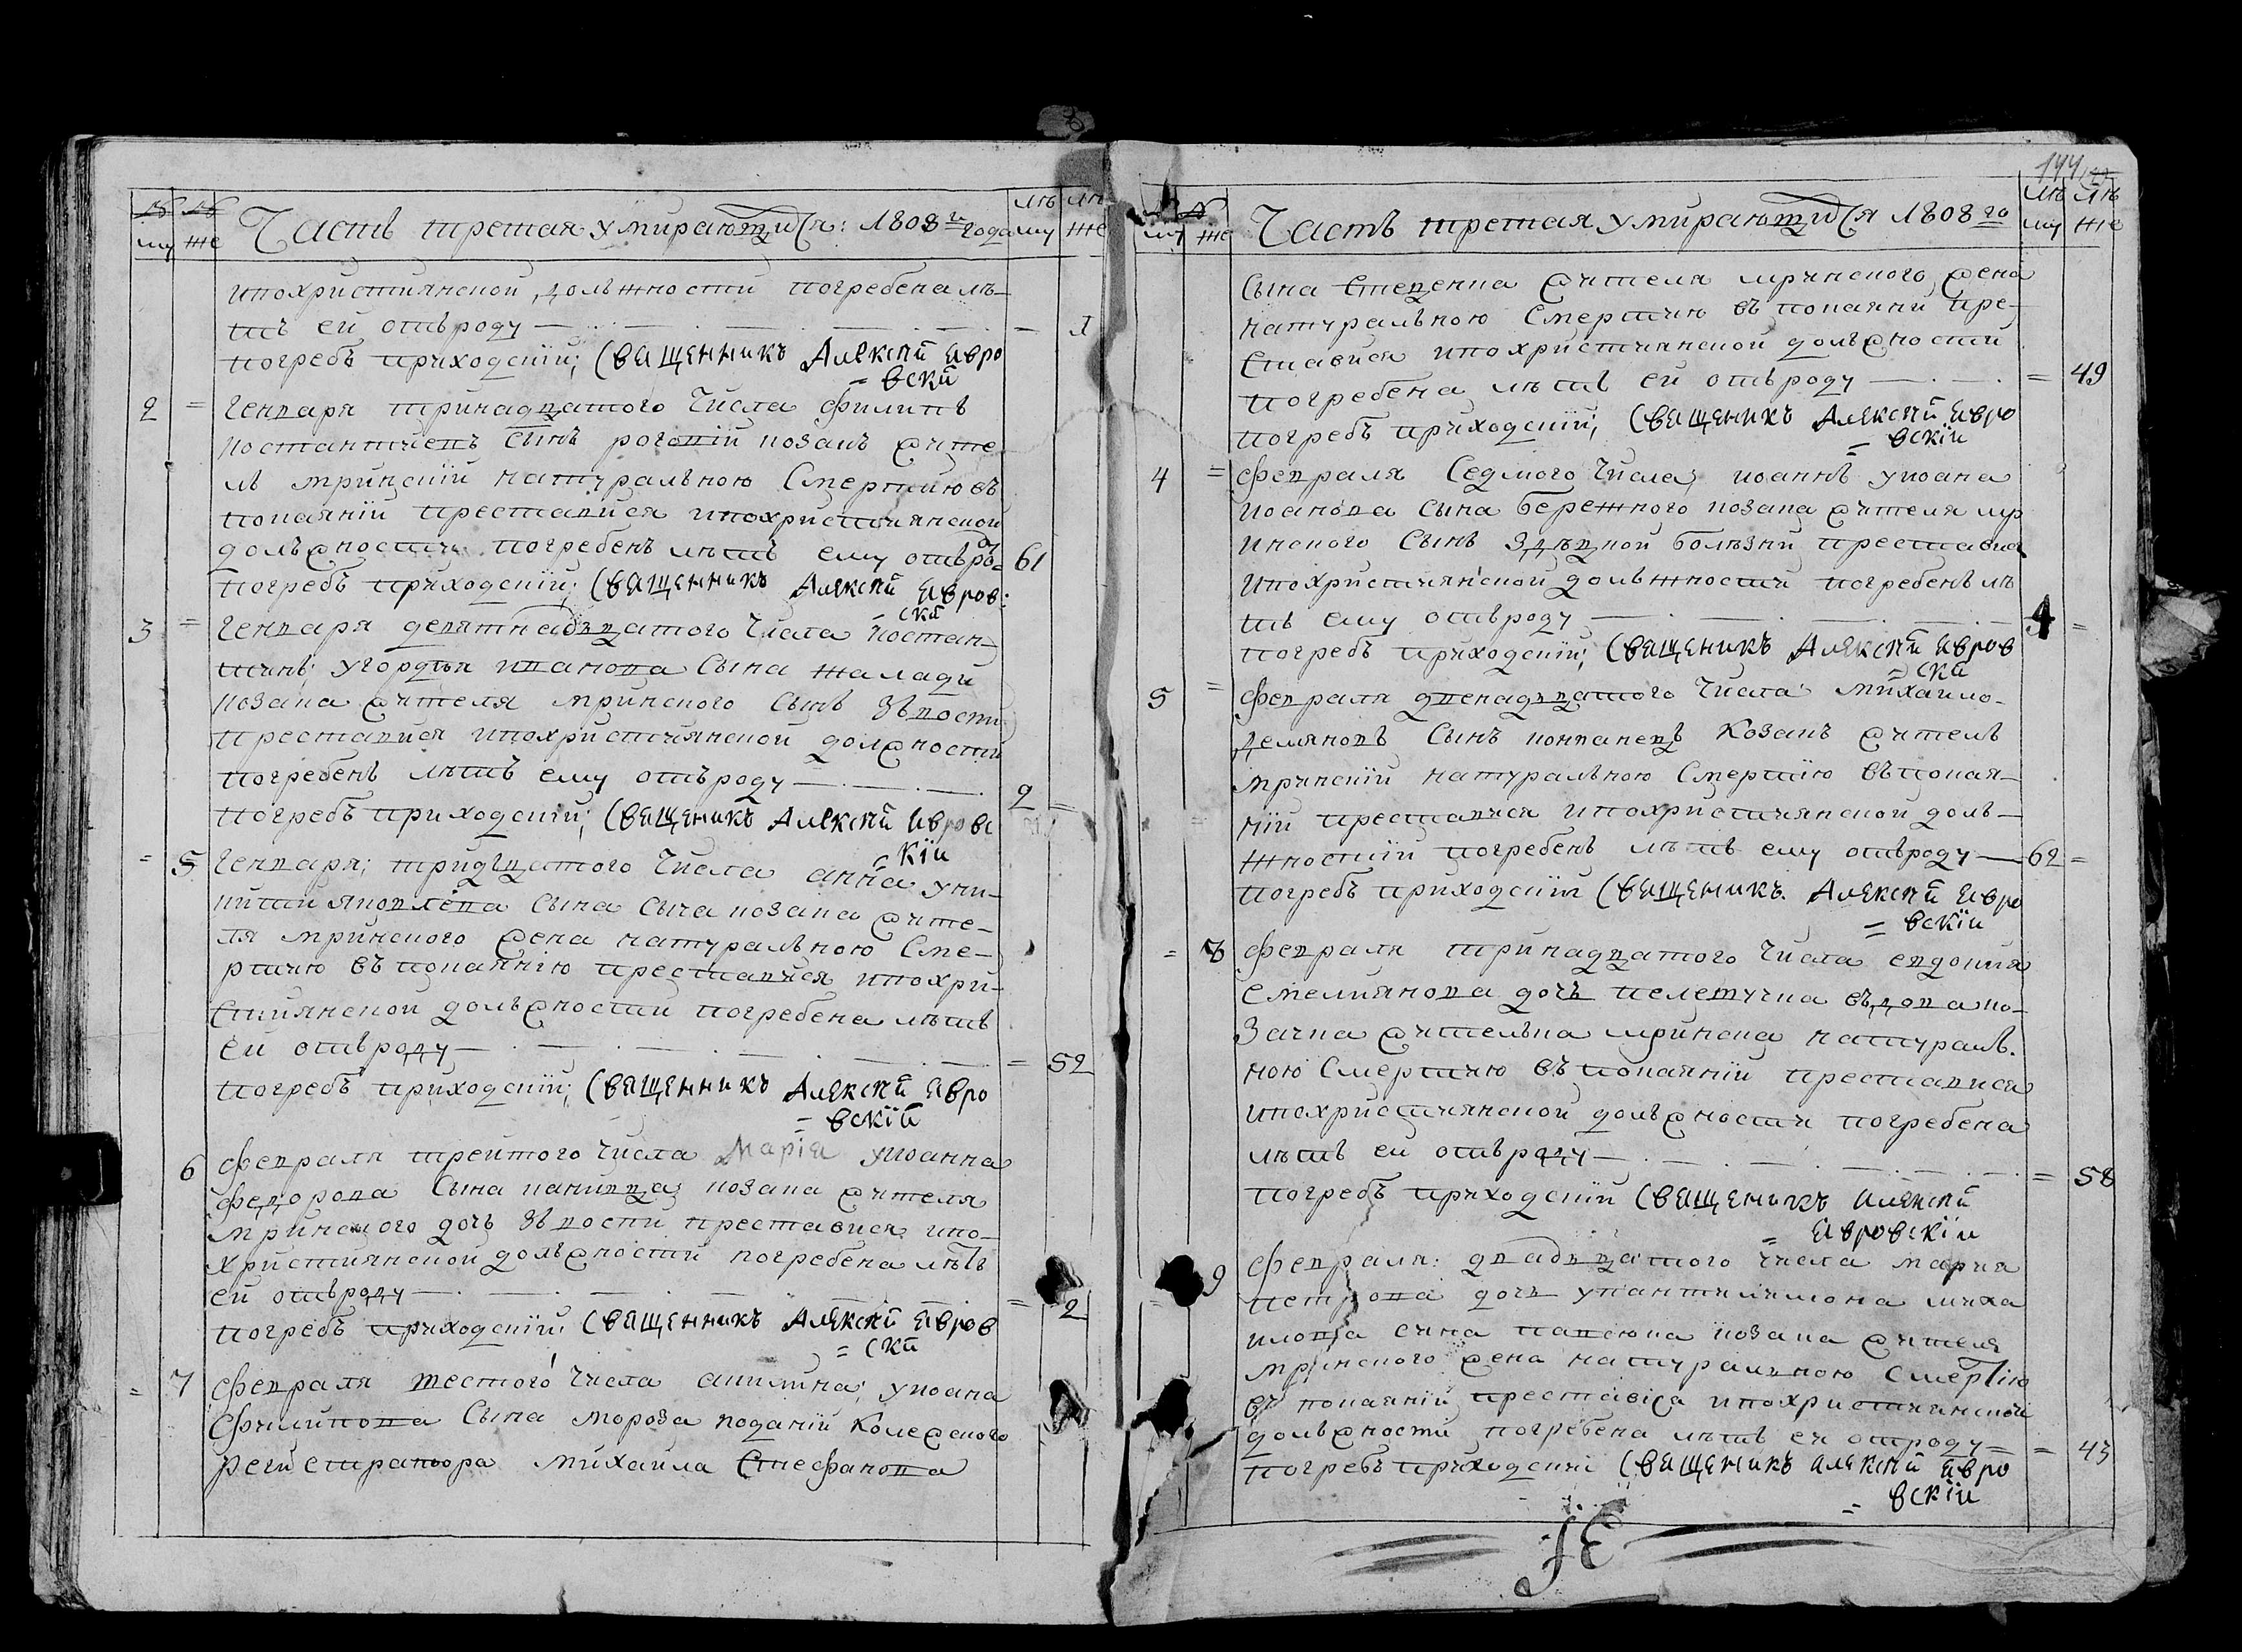 Часть третая умирающися: 1808 го года
ипохристиянской должности погребена лѣ-
тъ ей отъ роду — 1
погребъ приходскій; священникъ Алексій Явро
= вскій
2 = генваря тринадцатого числа филипъ
костантиевъ сынъ козакъ жите
ль мринскій натуральною смертию въ
покаяніи преставися ипохристиянской
должности погребенъ лѣтъ ему отъ ро= 61
погребъ приходскій; священникъ Алексій Явров:
= скй
3 = генваря девятнадцатого числа костан-
тинъ угордѣя иванова сына жалади
козака жителя мринского сынъ зъ воспи
преставися ипохристиянской должности
погребенъ лѣтъ ему отъ роду — 2 =
погребъ приходскій; священикъ Алексій Явровс
= кій
= 5 генваря; тридцатого числа анна уни-
киты яковлева сына сыча козака жите-
ля мринского жена натуральною сме-
ртию въ покаяніи преставися ипохри-
стиянской должности погребена лѣтъ
ей отъ роду — = 52
погребъ приходскій; священникъ Алексій Явро
= вскій
6 февраля третого числа Марія уиоанна
федорова сына козака жителя
мринского дочь зъ воспи преставися ипо-
християнской должности погребена лѣтъ
ей отъ роду — = 2
погребъ приходскій священникъ Алексій Явров
= скй
= 7 февраля шестого числа акилина; уиоана
филипова сына мороза поданій колежского
регистратора михаила стефанова
144
Часть третая умирающися 1808 го
сына жителя мринского жена
натуральною смертию въ покаяніи пре-
ставися ипохристиянской должности
погребена лѣтъ ей отъ роду — = 49
погребъ приходскій; священикъ Алексій Явро
= вскій
4 = февраля седмого числа; иоаннъ уиоана
иоанова сына бережного козака жителя мр
инского сынъ болѣзни преставися
ипохристиянской должности погребенъ лѣ
тъ ему отъ роду — 4 =
погребъ приходскій; священикъ Алексій Явров
= скй
5 = февраля двенадцатого числа михаило
демяновъ сынъ козакъ житель
мринскій натуральною смертію въ покая-
ніи преставися ипохристиянской доль-
жностіи погребенъ лѣтъ ему отъ роду — 62 =
погребъ приходскій священикъ. Алексій Явро
= вскій
= 8 февраля тринадцатого числа евдокия
емелиянова дочь въдова ко-
зачка жителька мринска натураль.
ною смертию въ покаяніи преставися
ипохристиянской должности погребена
лѣтъ ей отъ роду — = 58
погребъ приходскій священикъ Алексій
= Явровскій
= 9 февраля: двадцатого числа мария
петрова дочь упантилимона миха
илова сина козака жителя
мринского жена натуральною смертію
въ покаяніи преставіся ипохристиянской
должності погребена лѣтъ ей отроду = = 43
погребъ приходскій священикъ алексій Явро
= вскій